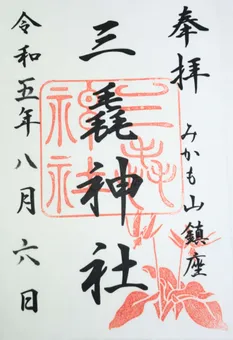 奉拝
みかも山鎮座
三毳神社
三毳神社
令和五年八月六日